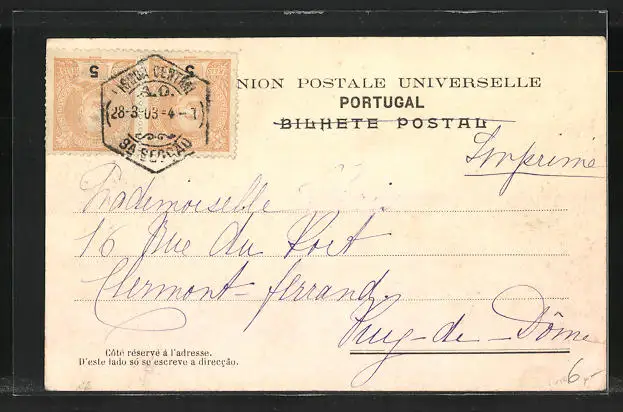 5 5
LISBOA CENTRAL
A.O.
28-3-03-4-T
3A SECÇÃO
UNION POSTALE UNIVERSELLE
PORTUGAL
BILHETE POSTAL
Imprimé
Mademoiselle
16 Rue du Port
Clermont-ferrand.
Puy-de-Dôme
Côté réservé à l'adresse.
D'este lado só se escreve a direcção.
6,-